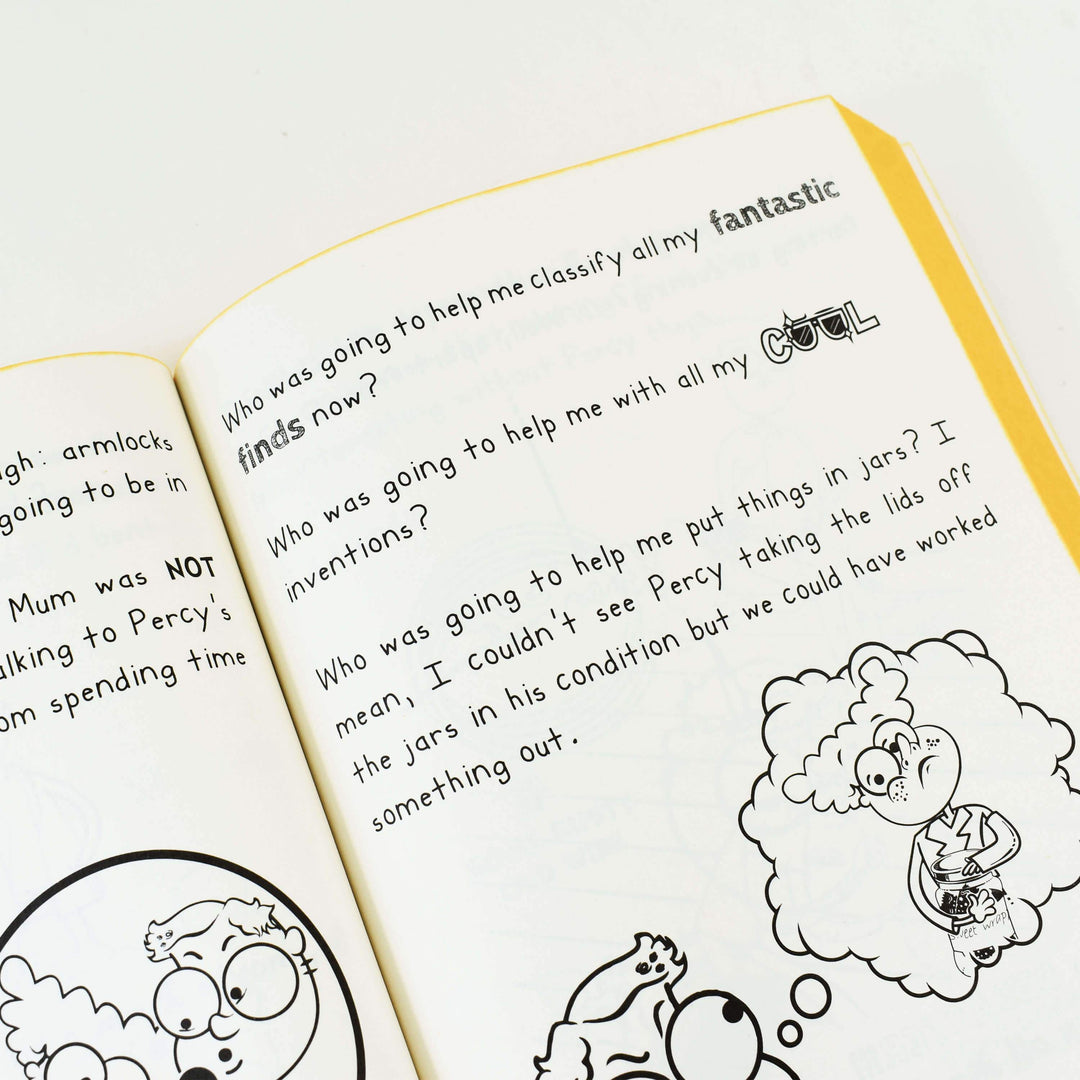 gh: armlocks
going to be in
Mum was NOT
alking to Percy's
om spending time
Who was going to help me classify all my fantastic
finds now?
Who was going to help me with all my COOL
inventions?
Who was going to help me put things in jars? I
mean, I couldn't see Percy taking the lids off
the jars in his condition but we could have worked
something out.
sweet wrap